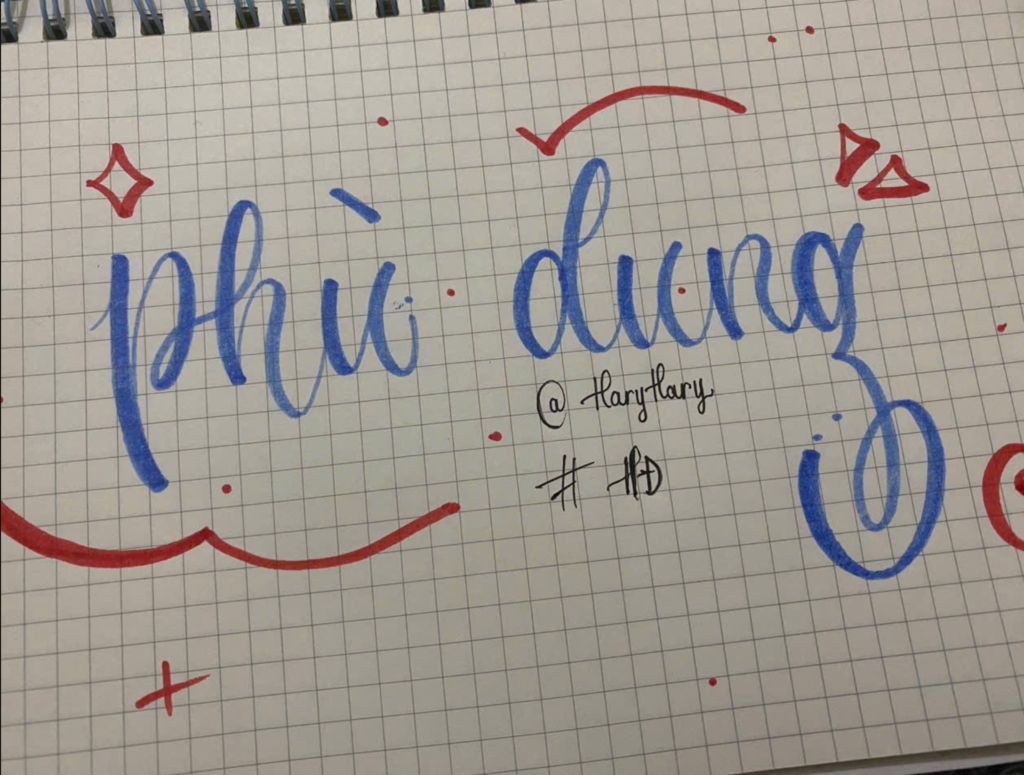 phù dung
@ HaryHary
# HD